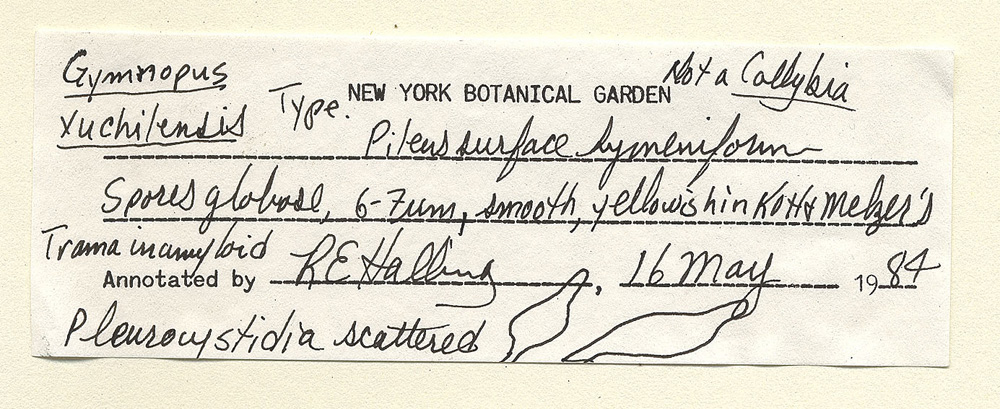 Gymnopus
xuchilensis
Type.
NEW YORK BOTANICAL GARDEN
Not a Collybia
Pileus surface hymeniform
Spores globose, 6-7um, smooth, yellowish in KOH & Melzer's
Trama inamyloid
Annotated by RE Halling, 16 May 1984
Pleurocystidia scattered